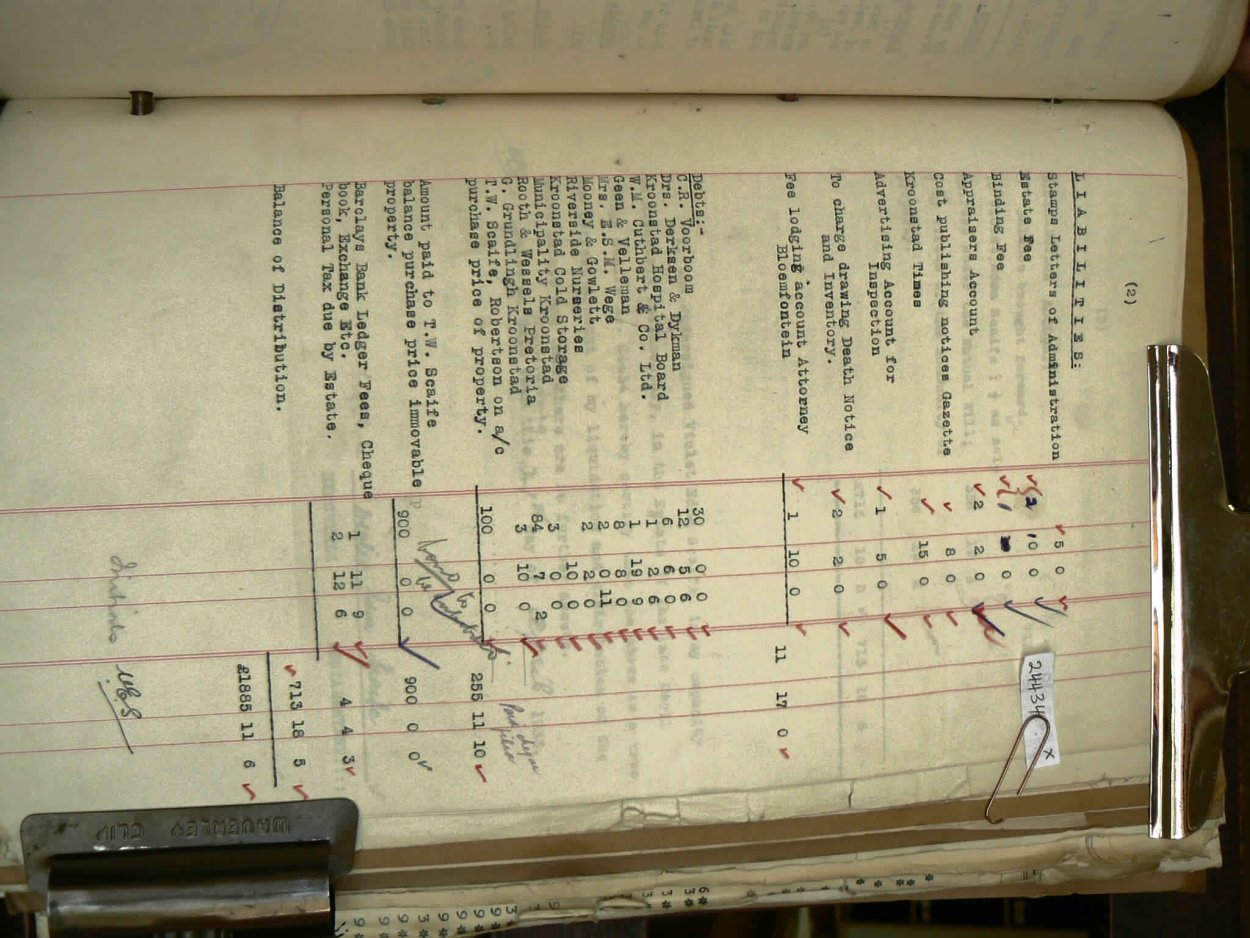 (2)
LIABILITIES:
Stamps Letters of Administration 5 0
Estate Fee 2 10 0
Binding Fee 1 0
Appraisers Account 2 2 0
Cost publishing notices Gazette 8 0
Kroonstad Times 15 0
Advertising Account for
Inspection 1 5 0
To charge drawing Death Notice
and Inventory. 2 2 0
Fee lodging account Attorney
Bloemfontein 1 10 0 11 17 0
Debts:-
C.R. Voorboom 30 0 0
Drs. Derksen & Dykman 12 5 6
Kroonstad Hospital Board 6 6 0
W.M. Cuthbert & Co. Ltd. 1 2 6
Geen & Velleman 1 19 9
Mrs. E.S.M. Wege 8 8 0
Mooney & Gowlett 2 0 11
Riverside Nurseries 2 2 0
Kroonstad Cold Storage 10 0
Municipality Kroonstad 3 0 0
Rooth & Wessels Pretoria 84 7 2
G. Grundlingh Kroonstad 3 10 0
T.W. Scaife, Robertson on a/c
purchase price of property. 100 0 0 255 11 10
Amount paid to T.W. Scaife
balance purchase price immovable p
property. 900 0 0 900 0 0
Barclays Bank Ledger Fees, Cheque
book, Exchange Etc. 1 11 9
Personal Tax due by Estate. 2 12 6 4 4 3
Balance of Distribution. 713 18 5
£1885 11 6
24434
x
WAVERLEY
CLIP